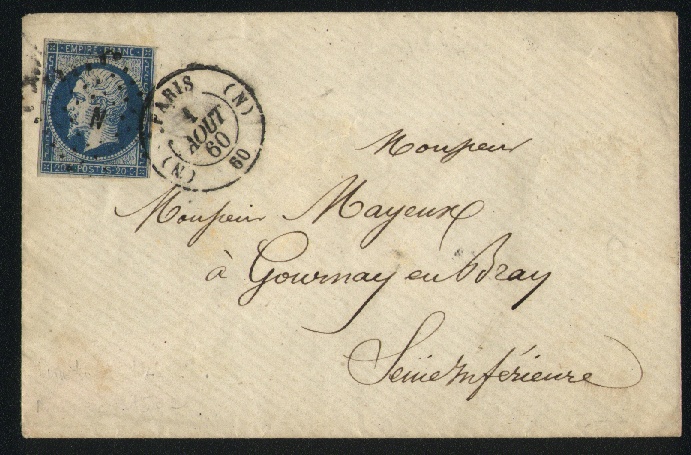 EMPIRE FRANC
N
20 POSTES 20
PARIS (N)
1
AOUT
60
(N) 60
Monsieur
Monsieur Mayeux
à Gournay en Bray
Seine Inférieure